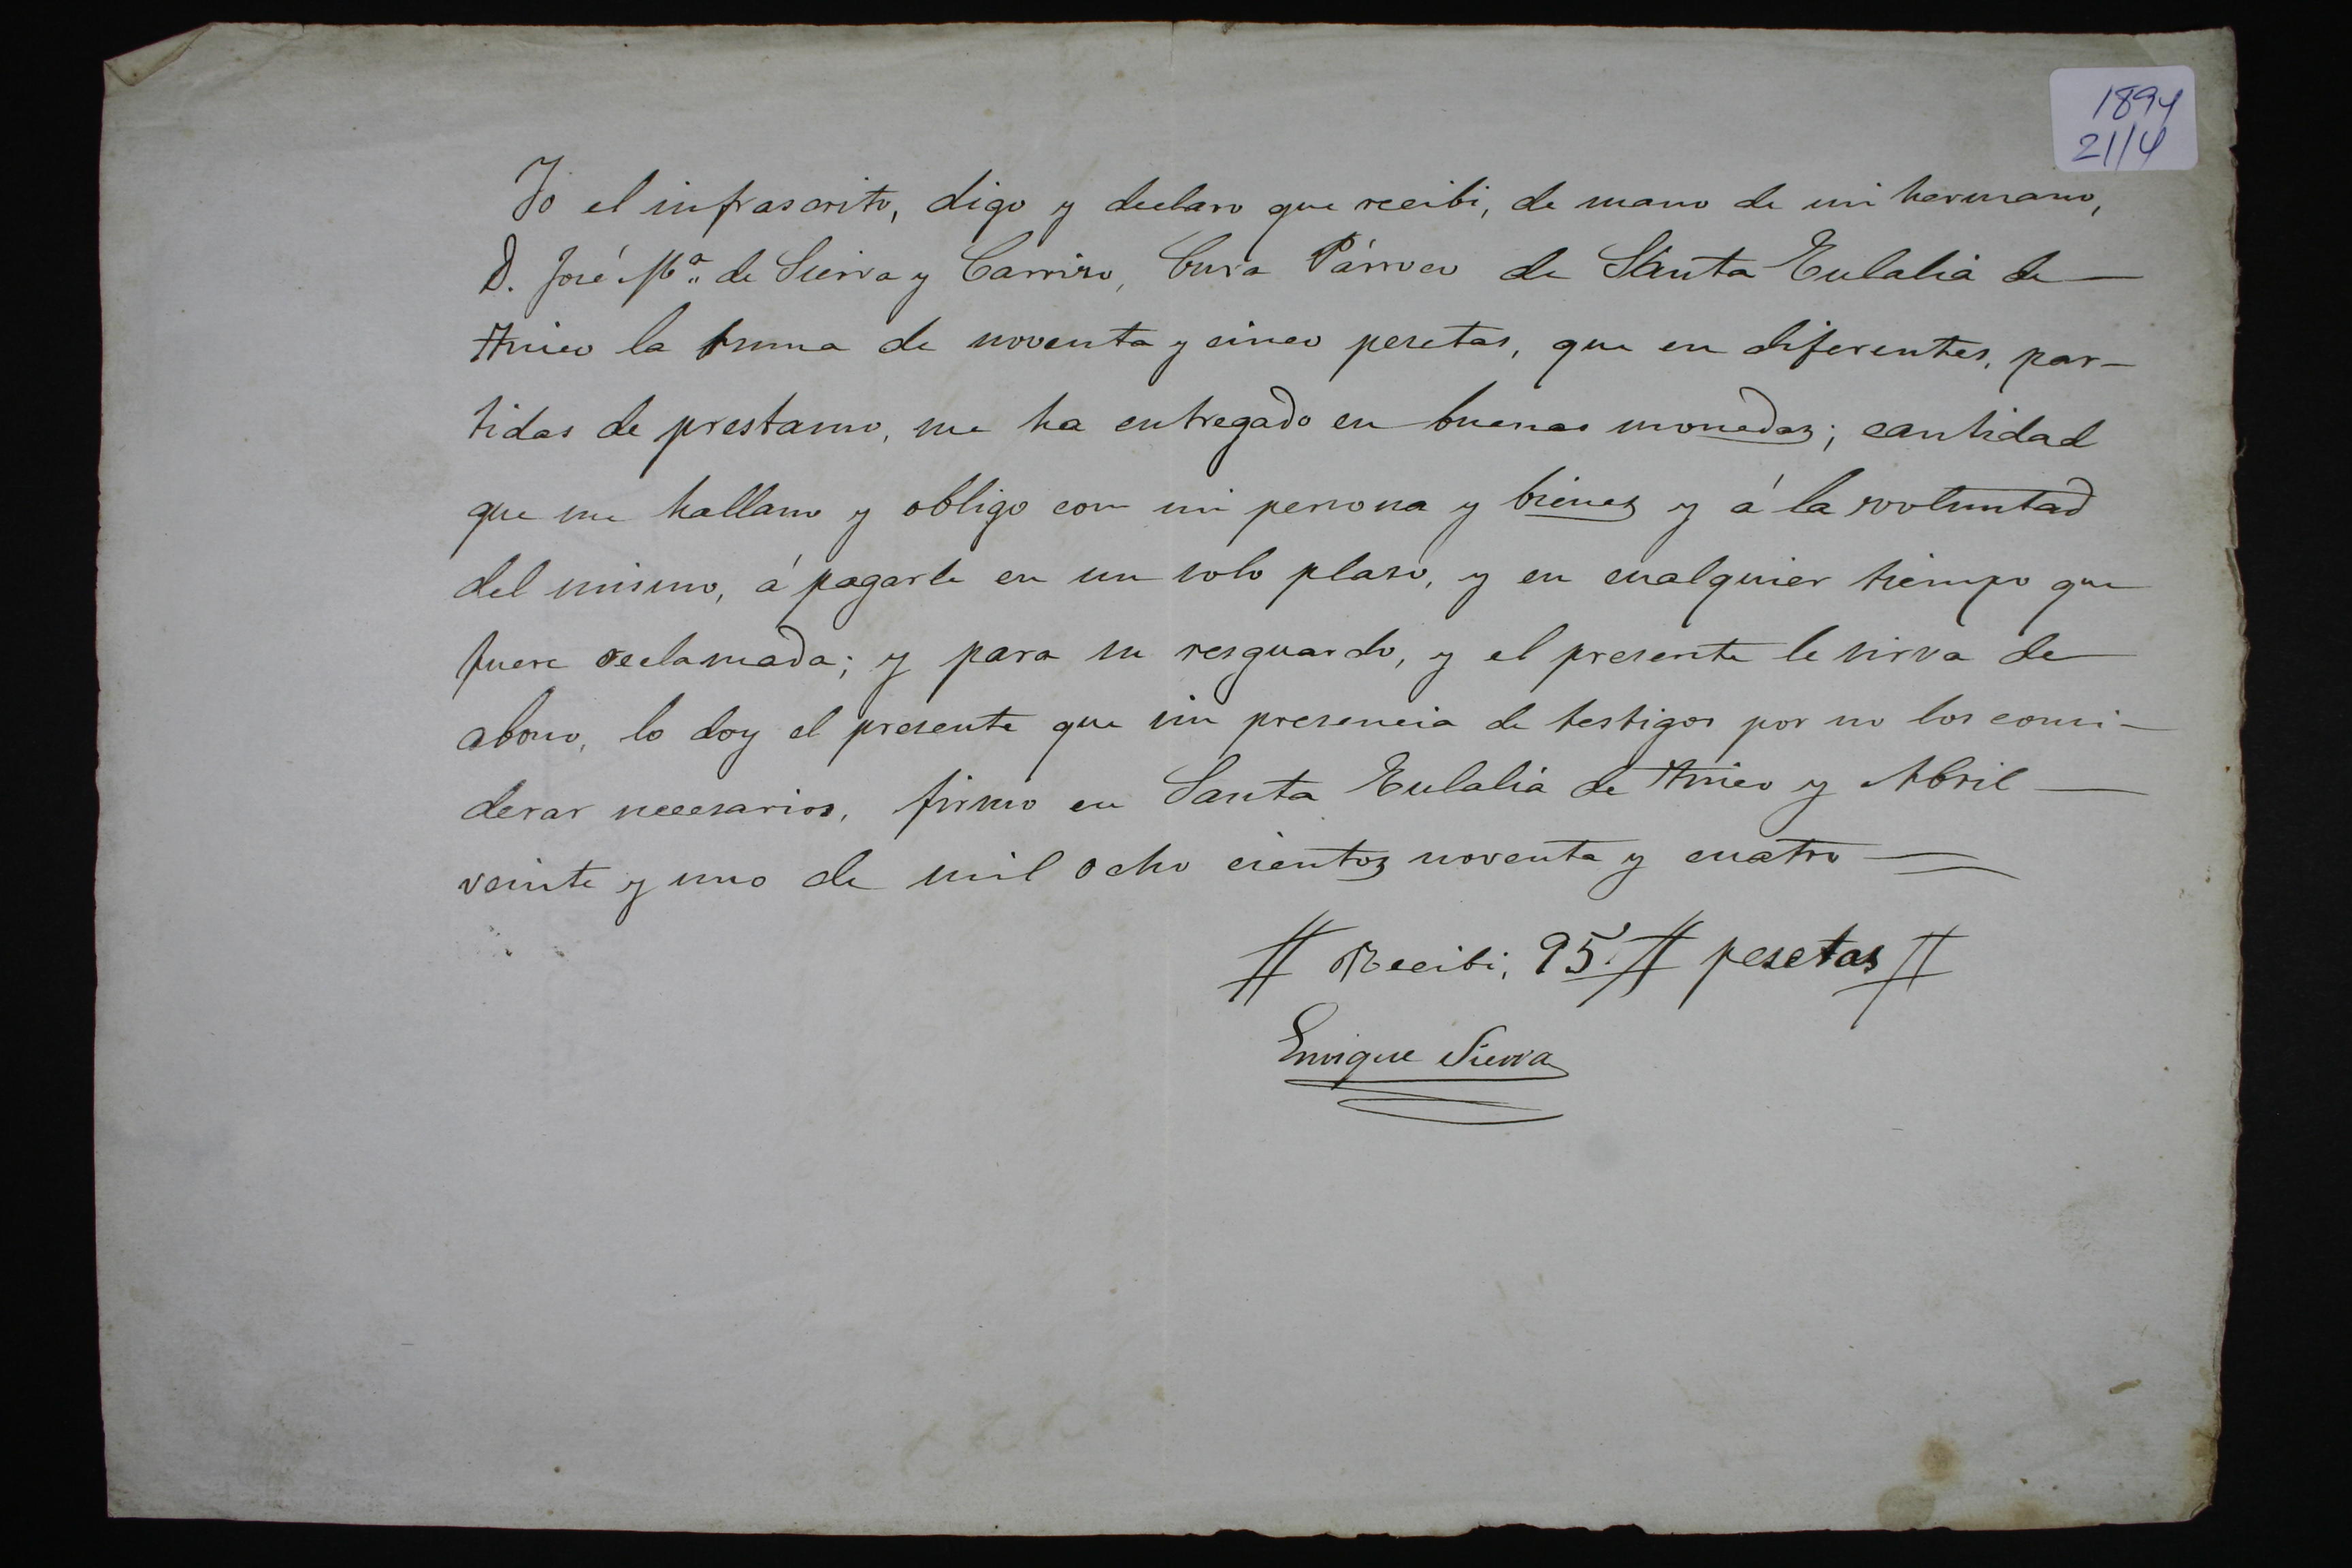 1894
21/4
Yo el infrascrito, digo y declaro que recibi, de mano de mi hermano,
D. José Mª. de Sierra y Carriso, Cura Párroco de Santa Eulalia de
la suma de noventa y cinco pesetas, que en diferentes, par-
tidas de prestamo, me ha entregado en buenas monedas; cantidad
que me hallano y obligo con mi persona y bienes y á la voluntad
del mismo, á pagarle en un solo plaso, y en cualquier tiempo que
fuere reclamada; y para su resguardo, y el presente le sirva de
abono, lo doy el presente que sin presencia de testigos por no los consi-
derar necesarios, firmo en Santa Eulalia de y Abril
veinte y uno de mil ocho cientos noventa y cuatro
# Recibi, 95 # pesetas #
Enrique Sierra